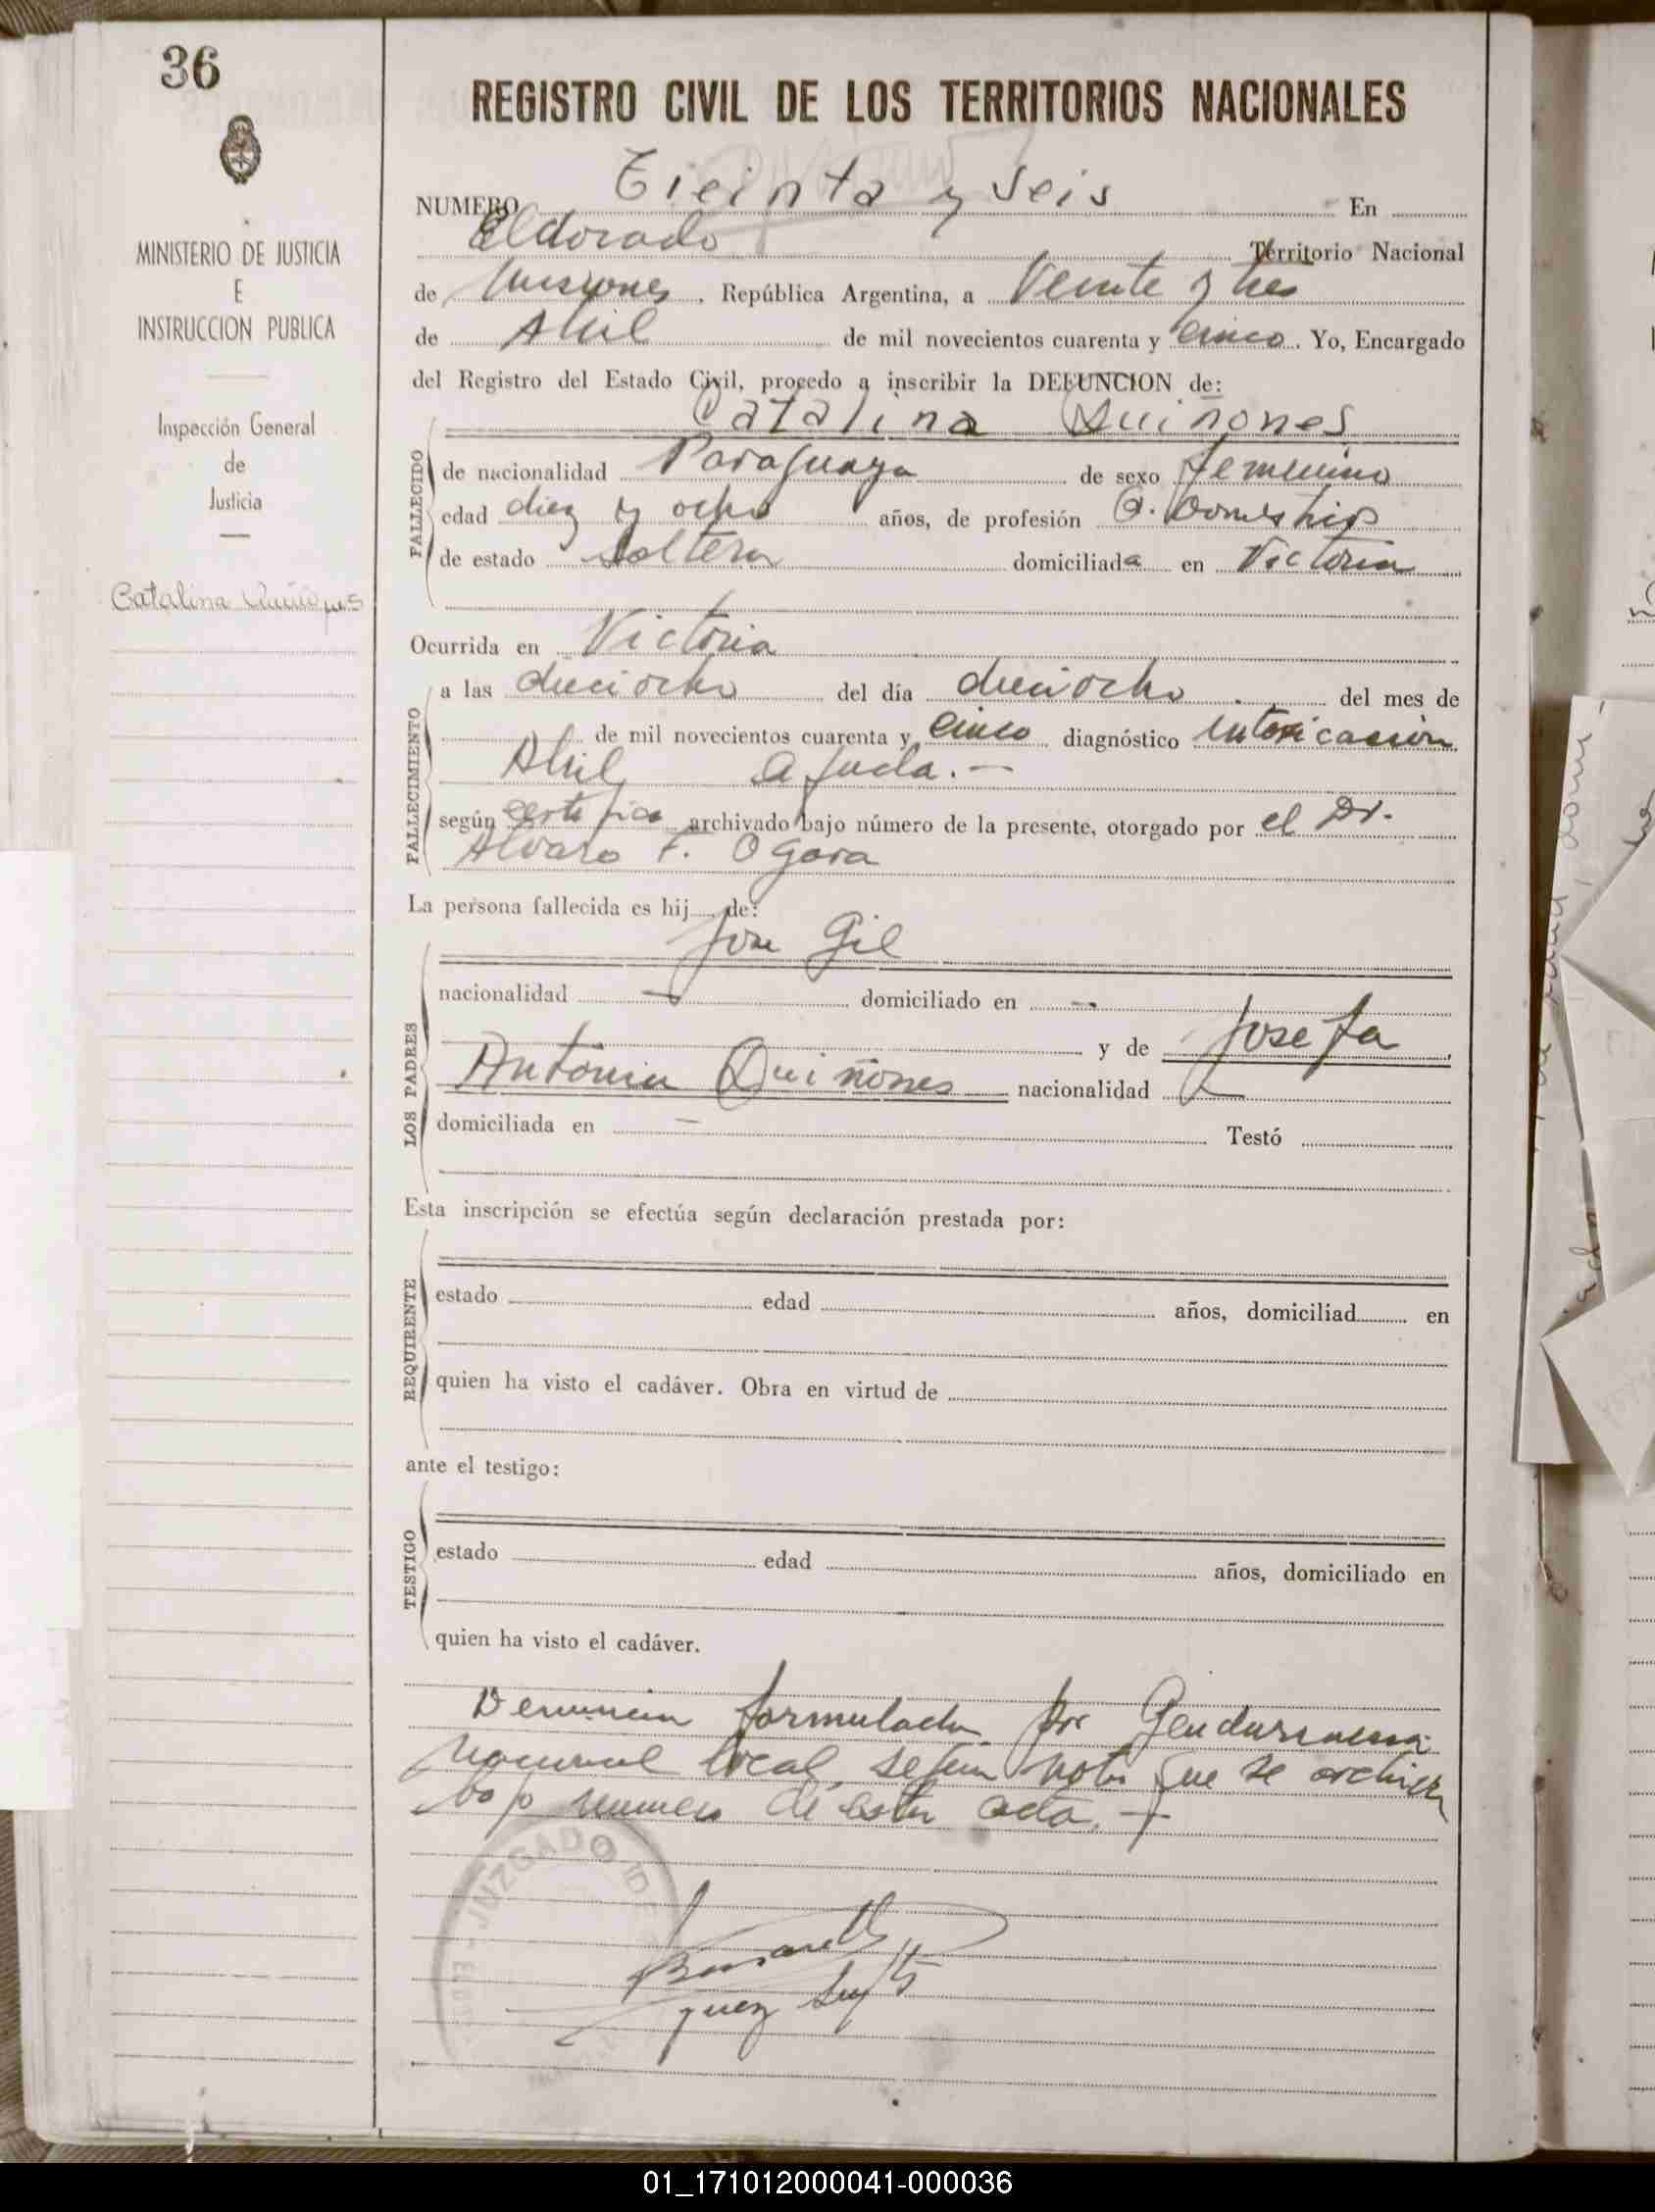 36
MINISTERIO DE JUSTICIA
E
INSTRUCCION PUBLICA
Inspección General
de
Justicia
Catalina Quiñones
REGISTRO CIVIL DE LOS TERRITORIOS NACIONALES
NUMERO Treinta y Seis En
Eldorado Territorio Nacional
de Misiones, República Argentina, a Veinte y tres
de Abril de mil novecientos cuarenta y cinco. Yo, Encargado
del Registro del Estado Civil, procedo a inscribir la DEFUNCION de:
Catalina Quiñones
FALLECIDO
de nacionalidad Paraguaya de sexo femenino
edad diez y ocho años, de profesión Q. Domesticos
de estado soltera domiciliada en Victoria
Ocurrida en Victoria
FALLECIMIENTO
a las dieciocho del día dieciocho del mes de
de mil novecientos cuarenta y cinco diagnóstico intoxicación
Abril aguda.—
según certifico archivado bajo número de la presente, otorgado por el Dr.
Alvaro F. Ogara
La persona fallecida es hij de:
LOS PADRES
Jose Gil
nacionalidad — domiciliado en —
y de Josefa
Antonia Quiñones nacionalidad —
domiciliada en — Testó
Esta inscripción se efectúa según declaración prestada por:
REQUIRENTE
estado edad años, domiciliad en
quien ha visto el cadáver. Obra en virtud de
ante el testigo:
TESTIGO
estado edad años, domiciliado en
quien ha visto el cadáver.
Denuncia formulada por Gendarmeria
Nacional local, según nota que se archiva
bajo numero de esta acta.—
JUZGADO D
Juez Supl
01_171012000041-000036